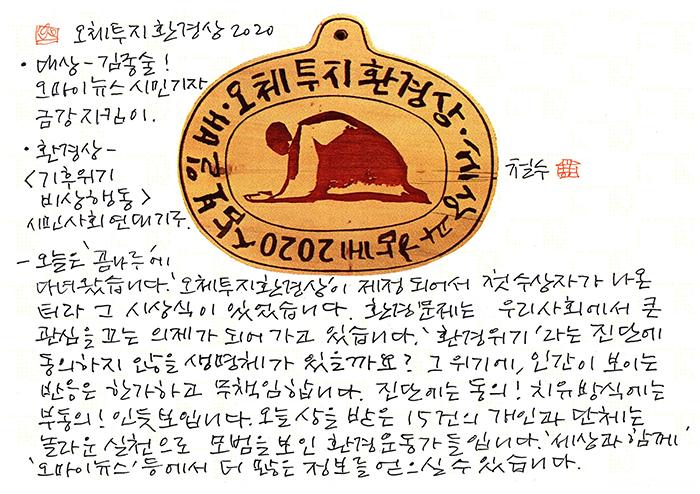 오체투지환경상 2020
• 대상 - 김종술!
오마이뉴스 시민기자
금강지킴이.
• 환경상 -
<기후위기
비상행동>
시민사회연대기구.
삼보일배·오체투지환경상·세상과함께2020
철수
- 오늘은 '곰나루'에
다녀왔습니다. '오체투지환경상'이 제정되어서 첫 수상자가 나온
터라 그 시상식이 있었습니다. 환경문제는 우리사회에서 큰
관심을 끄는 의제가 되어가고 있습니다. '환경위기'라는 진단에
동의하지 않을 생명체가 있을까요? 그 위기에, 인간이 보이는
반응은 한가하고 무책임합니다. 진단에는 동의! 치유방식에는
부동의! 인듯 보입니다. 오늘 상을 받은 15건의 개인과 단체는
놀라운 실천으로 모범을 보인 환경운동가들입니다. '세상과 함께'
'오마이뉴스' 등에서 더 많은 정보를 얻으실 수 있습니다.